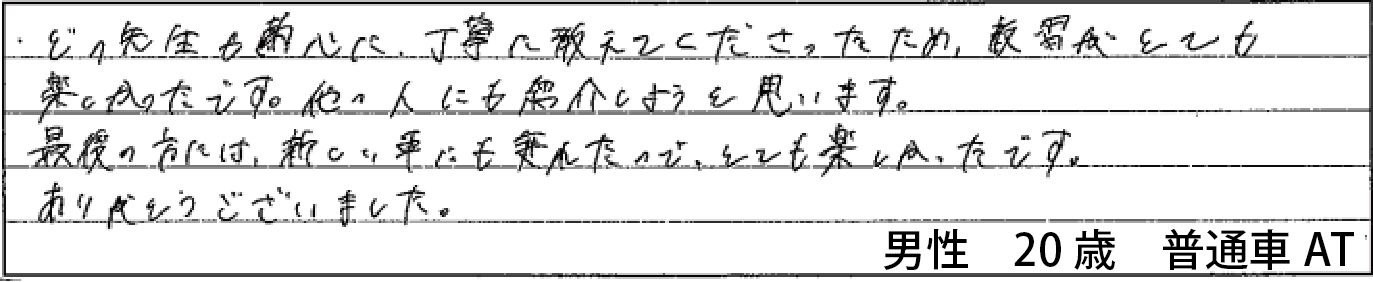 ・どの先生も熱心に、丁寧に教えてくださったため、教習がとても
楽しかったです。他の人にも紹介しようと思います。
最後の方には、新しい車にも乗れたので、とても楽しかったです。
ありがとうございました。
男性　20歳　普通車AT